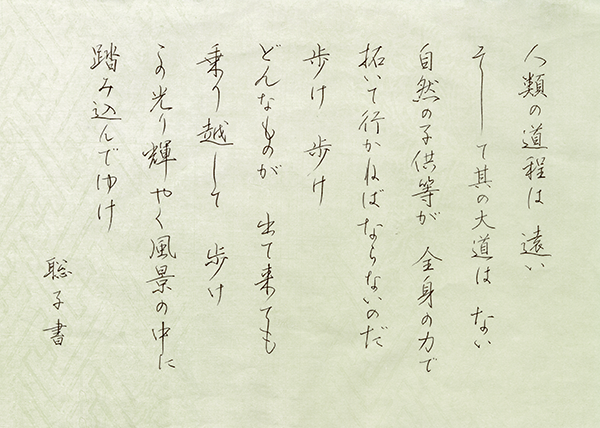 人類の道程は 遠い
そして其の大道は ない
自然の子供等が 全身の力で
拓いて行かねばならないのだ
歩け 歩け
どんなものが 出て来ても
乗り越して 歩け
この光り輝やく風景の中に
踏み込んでゆけ
聡子書